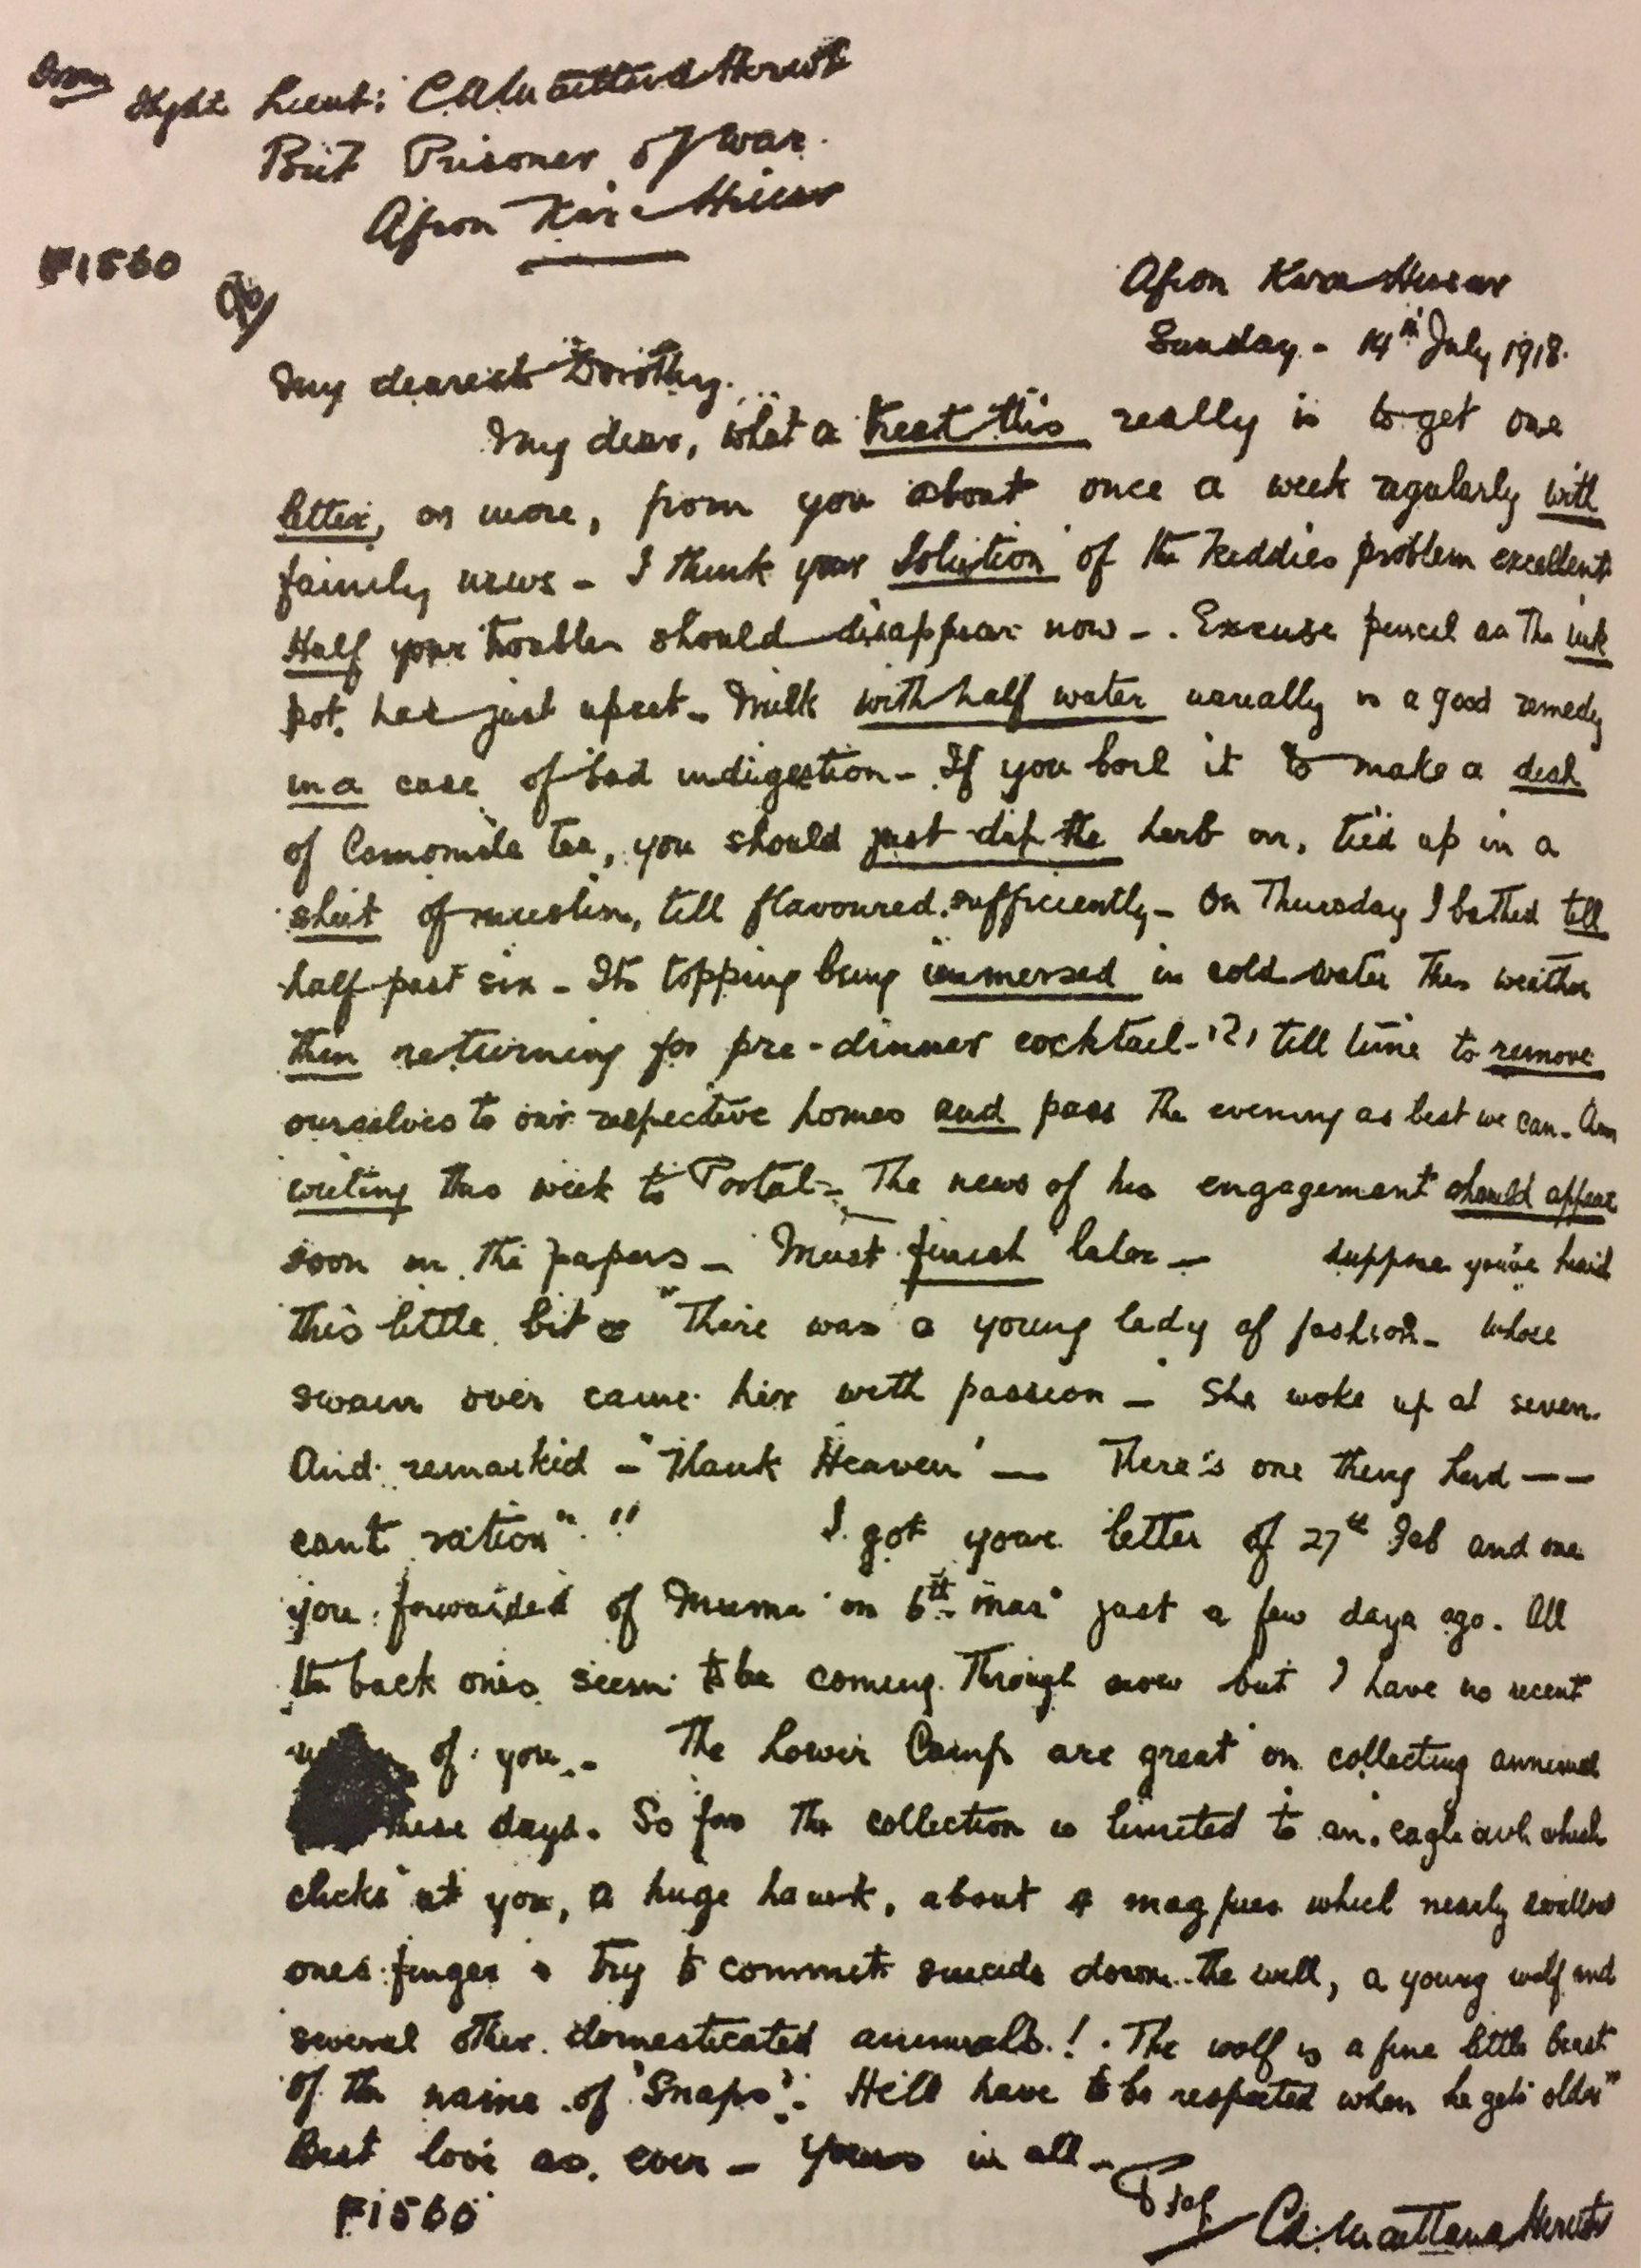 From
Flight Lieut: C.A. Maitland Heriot
Brit Prisoner of War.
Afion Kara Hissar
F1560
Afion Kara Hissar
Sunday - 14th July 1918.
My dearest Dorothy.
My dear, what a treat this really is to get one
letter, or more, from you about once a week regularly with
family news - I think your solution of the Kiddies problem excellent
Half your troubles should disappear now -. Excuse pencil as the ink
pot has just upset - Milk with half water usually is a good remedy
in a case of bad indigestion - If you boil it to make a dish
of Camomile tea, you should just dip the herb in, tied up in a
sheet of muslin, till flavoured sufficiently - On Thursday I bathed till
half past six - Its topping being immersed in cold water this weather
then returning for pre-dinner cocktail - (?) till time to remove
ourselves to our respective homes and pass the evening as best we can. Am
writing this week to Portal - The news of his engagement should appear
soon in the papers - Must finish later - suppose you've heard
this little bit "There was a young lady of fashion - whose
swain over came her with passion - She woke up at seven.
And remarked - 'Thank Heaven' — There's one thing Lord — —
can't ration". " I got your letter of 27th Feb and one
you forwarded of Mumma on 6th Mar just a few days ago. All
the back ones seem to be coming through now but I have no recent
of you.- The Lower Camp are great on collecting animals
these days. So far the collection is limited to an eagle owl which
clicks at you, a huge hawk, about 4 magpies which nearly swallow
ones finger & try to commit suicide down the well, a young wolf and
several other domesticated animals! . The wolf is a fine little beast
of the name of 'Snaps'. He'll have to be respected when he gets older"
Best love as ever - yours in all -
F1560
C.A. Maitland Heriot